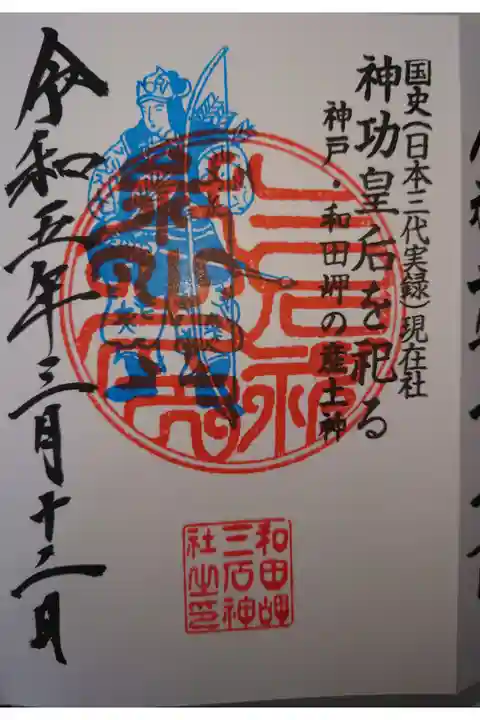 国史(日本三代実録)現在社
神功皇后を祀る
神戸・和田岬の産土神
三石神
令和五年三月十二日
和田岬
三石神
社之印